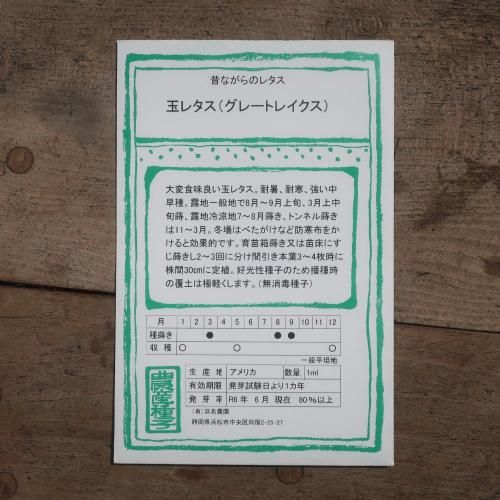 昔ながらのレタス
玉レタス(グレートレイクス)
大変食味良い玉レタス。耐暑、耐寒、強い中
早種。露地一般地で8月〜9月上旬、3月上中
旬蒔、露地冷涼地7〜8月蒔き、トンネル蒔き
は11〜3月。冬場はべたがけなど防寒布をか
けると効果的です。育苗箱蒔き又は苗床にす
じ蒔きし2〜3回に分け間引き本葉3〜4枚時に
株間30cmに定植。好光性種子のため播種時
の覆土は極軽くします。(無消毒種子)
月 1 2 3 4 5 6 7 8 9 10 11 12
種蒔き ● ● ●
収穫 ○ ○ ○
一般平坦地
農産種子
生産地 アメリカ 数量 1ml
有効期限 発芽試験日より1カ年
発芽率 R6年 6月 現在 80%以上
(有)浜名農園
静岡県浜松市中央区向宿2-25-27